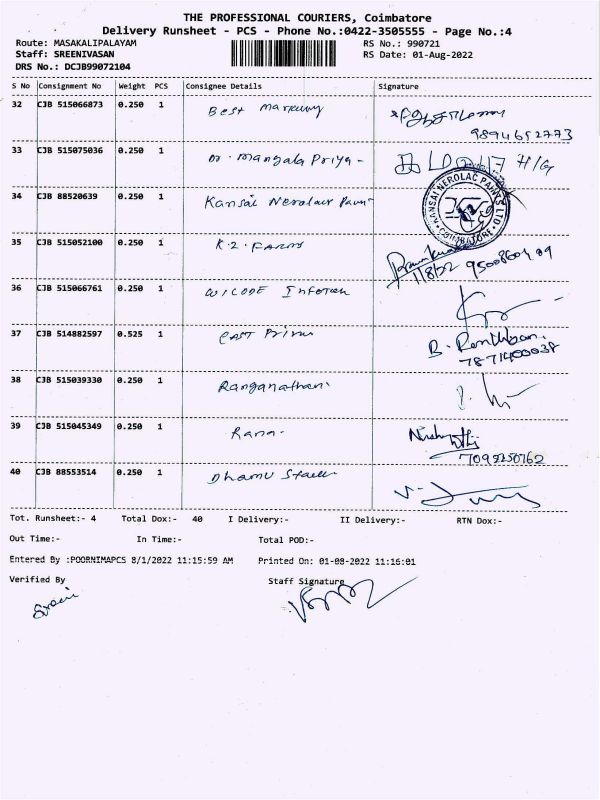 THE PROFESSIONAL COURIERS, Coimbatore
Delivery Runsheet - PCS - Phone No.:0422-3505555 - Page No.:4
Route: MASAKALIPALAYAM RS No.: 990721
Staff: SREENIVASAN RS Date: 01-Aug-2022
DRS No.: DCJB99072104
S No Consignment No Weight PCS Consignee Details Signature
32 CJB 515066873 0.250 1 Best
9894652773
33 CJB 515075036 0.250 1 Dr. Mangala Priya -
34 CJB 88520639 0.250 1 Kansai Nerolac
KANSAI NEROLAC PAINTS LTD. COIMBATORE
35 CJB 515052100 0.250 1 K.2. FARMS
36 CJB 515066761 0.250 1
37 CJB 514882597 0.525 1 EAST
B.
7871400038
38 CJB 515039330 0.250 1 Ranganathan.
39 CJB 515045349 0.250 1 Rana-
7092250762
40 CJB 88553514 0.250 1 Dhamu
Tot. Runsheet:- 4 Total Dox:- 40 I Delivery:- II Delivery:- RTN Dox:-
Out Time:- In Time:- Total POD:-
Entered By :POORNIMAPCS 8/1/2022 11:15:59 AM Printed On: 01-08-2022 11:16:01
Verified By Staff Signature